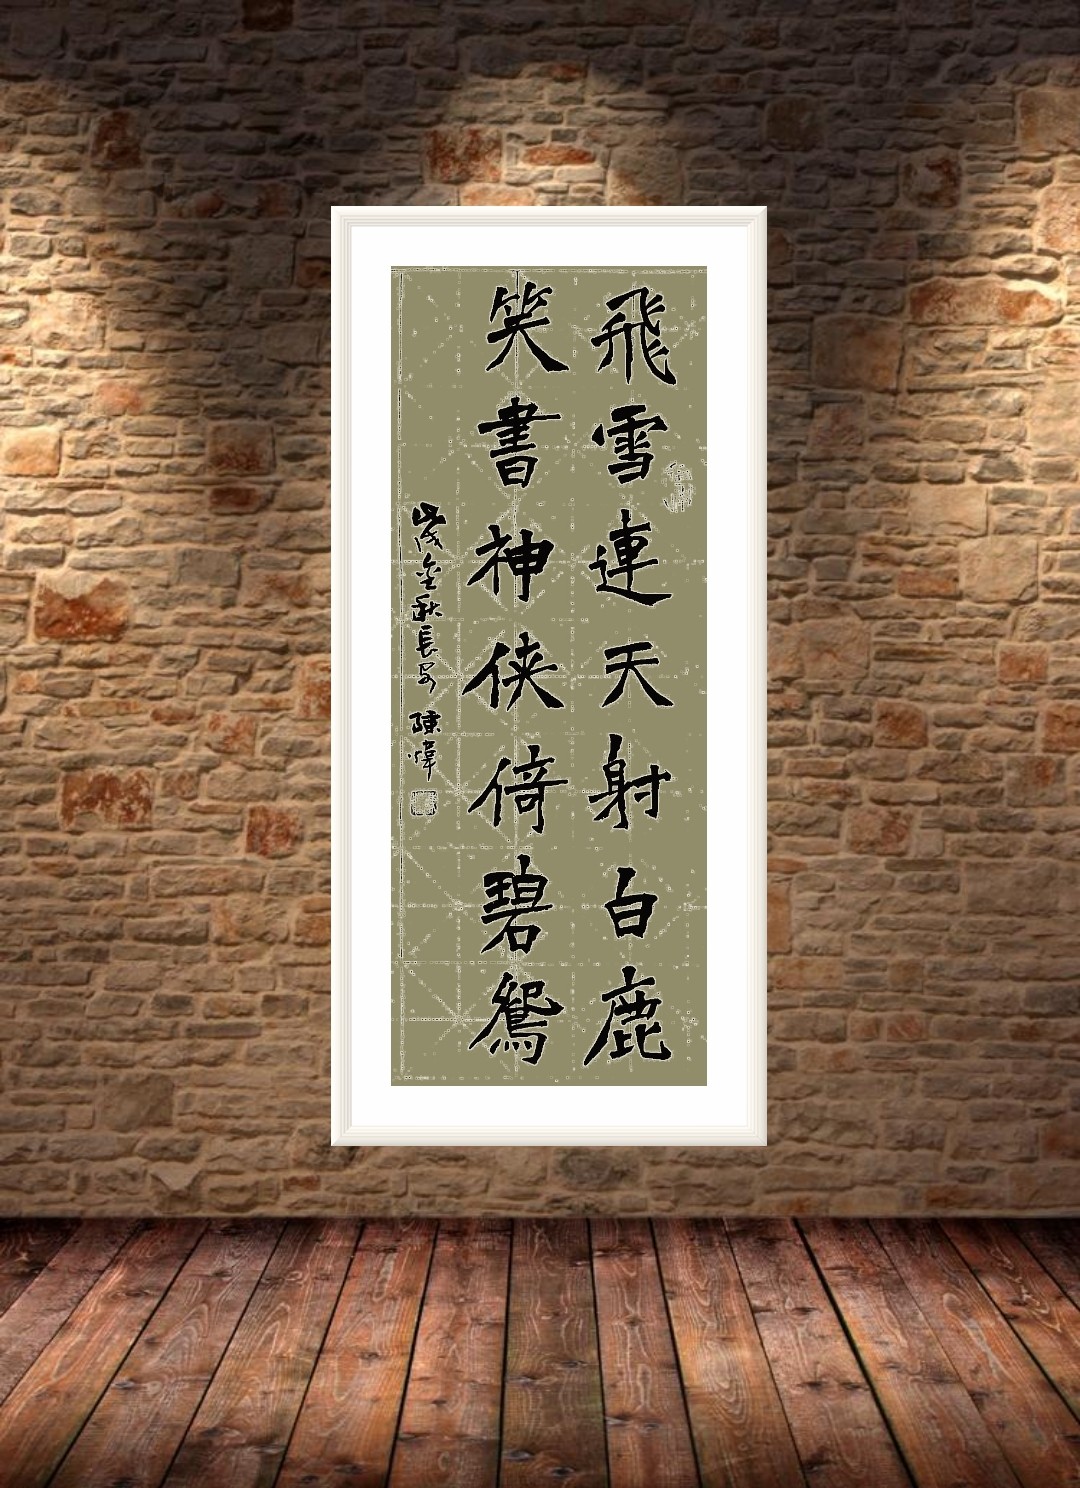 飛雪連天射白鹿
笑書神侠倚碧鴛
歲金秋長安 陳煒